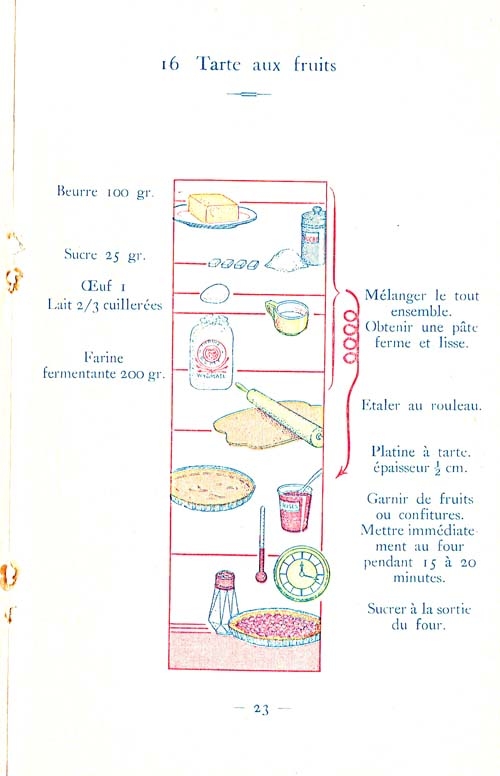 16 Tarte aux fruits
Beurre 100 gr.
Sucre 25 gr.
Œuf 1
Lait 2/3 cuillerées
Farine
fermentante 200 gr.
Mélanger le tout
ensemble.
Obtenir une pâte
ferme et lisse.
Etaler au rouleau.
Platine à tarte.
épaisseur ½ cm.
Garnir de fruits
ou confitures.
Mettre immédiate-
ment au four
pendant 15 à 20
minutes.
Sucrer à la sortie
du four.
— 23 —